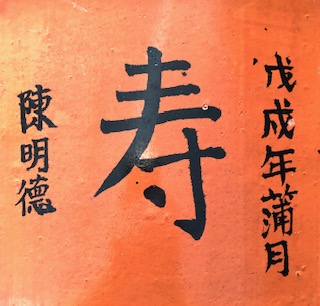 戊成年蒲月
寿
陳明德